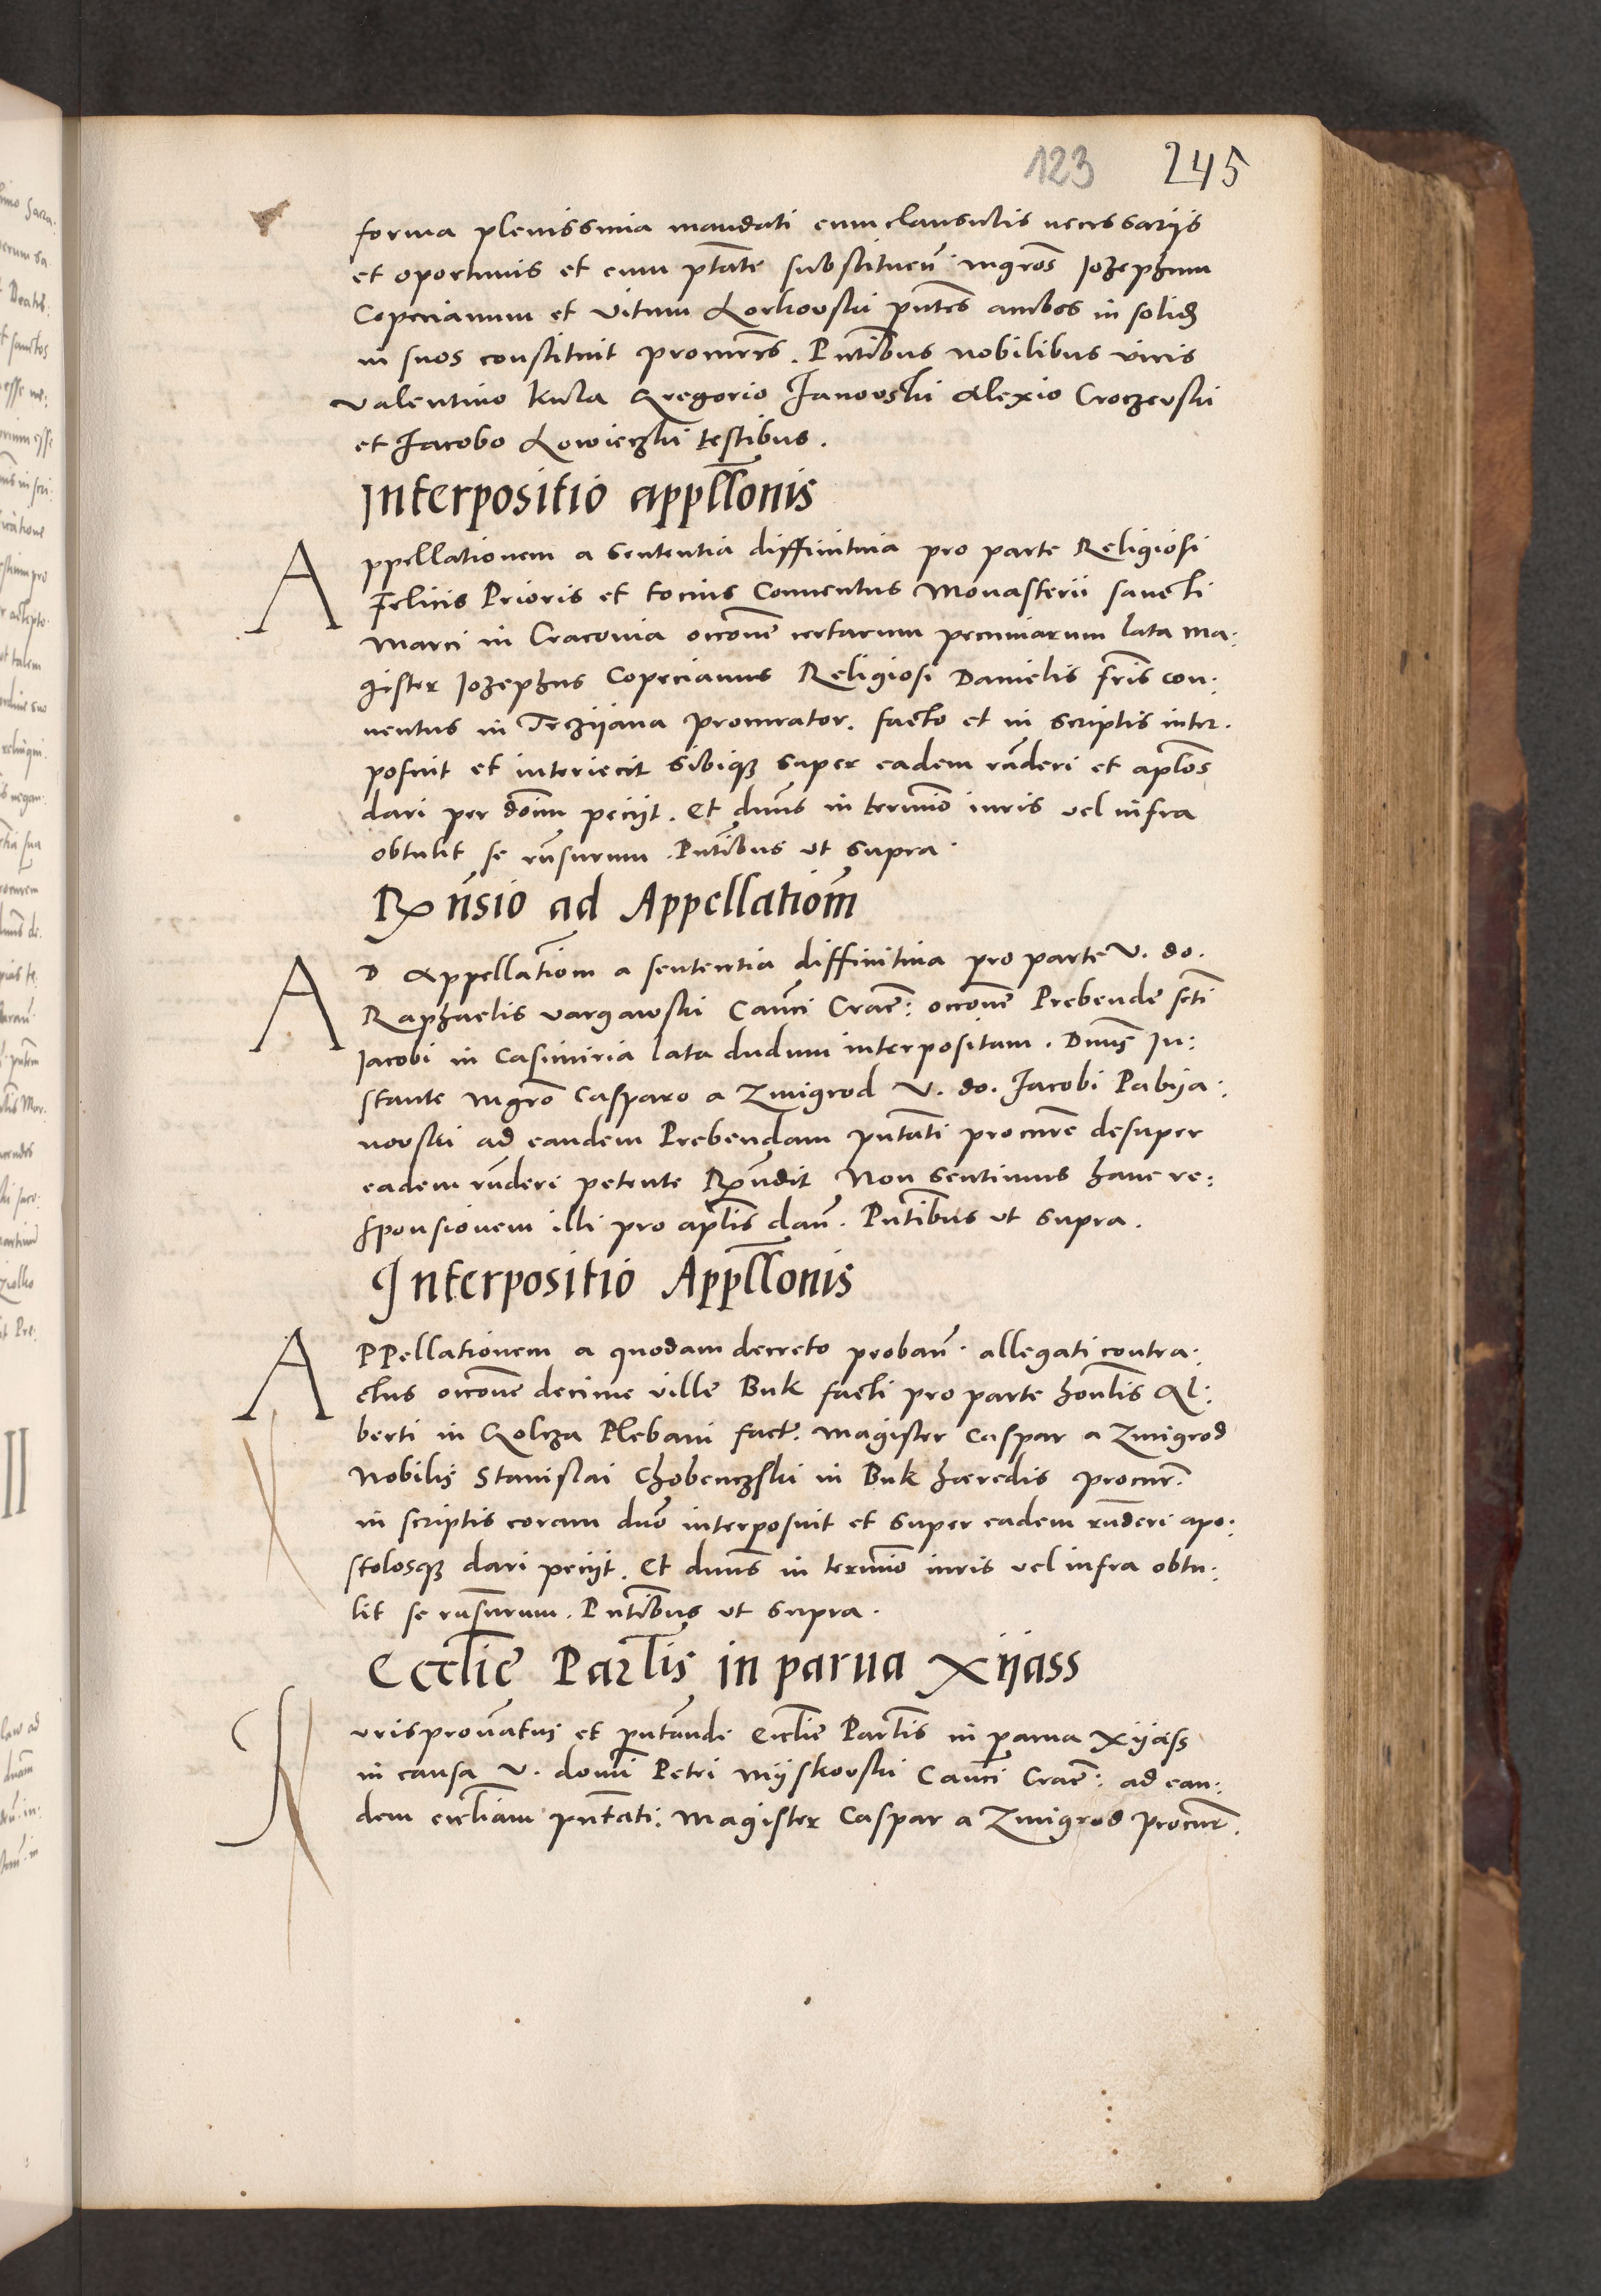 123 245
forma plenissima mandati cum clausulis necessariis
et oportunis et cum ptãte substituen̄ mgros Jozephum
Copecianum et Vitum Lorkovski pñtes ambos in solid
in suos constituit procures. Pñtibus nobilibus viris
Valentino Kula Gregorio Janovski Alexio Croczevski
et Jacobo Lowieczki testibus.
Interpositio appłłonis
Appellationem a sententia diffinitiua pro parte Religiosi
Felicis Prioris et tocius Conuentus Monasterii sancti
Marci in Cracouia occõne certarum pecuniarum lata ma:
gister Jozephus Copecianus Religiosi Danielis fr̃is con:
uentus in Trzijana procurator. facto et in scriptis inter.
posuit et interiecit sibiq3 super eadem rñderi et aplõs
dari per dõim pecijt. Et dnus in termio iuris vel infra
obtulit se rñsurum. Pñtibus ut supra.
Rx ñsio ad Appellatiom̃
Ad Appellatiom a sententia diffinitiua pro parte V. do.
Raphaelis Vargawski Canci Crac: occõne Prebende scti
Jacobi in Casimiria lata dudum interpositam. Dnus In:
stante mgro Casparo a Zmigrod V. do. Jacobi Pabija:
novski ad eandem Prebendam pñtati procure desuper
eadem rñderi petente Rxndit Non sentimus hanc re:
sponsionem illi pro aplis dan̄. Pñtibus ut supra.
Interpositio Appłłonis
APPellationem a quodam decreto proban̄. allegati contra:
ctus occõne decime ville Buk facti pro parte honlis Al:
berti in Golcza Plebani fact. Magister Caspar a Zmigrod
Nobilis Stanislai Chobenczski in Buk hæredis procur.
in scriptis coram dno interposuit et super eadem rñderi apo:
stolosq3 dari pecijt. Et dnus in termio iuris vel infra obtu:
lit se rñsurum. Pñtibus ut supra.
Ecclie Parlis in parua Xijass
Jurispronatus et pñtandi Ecclie Parlis in parua Xijass
in causa V. domi Petri Mijskovski Canci Crac: ad ean:
dem eccliam pñtati. Magister Caspar a Zmigrod Procur.